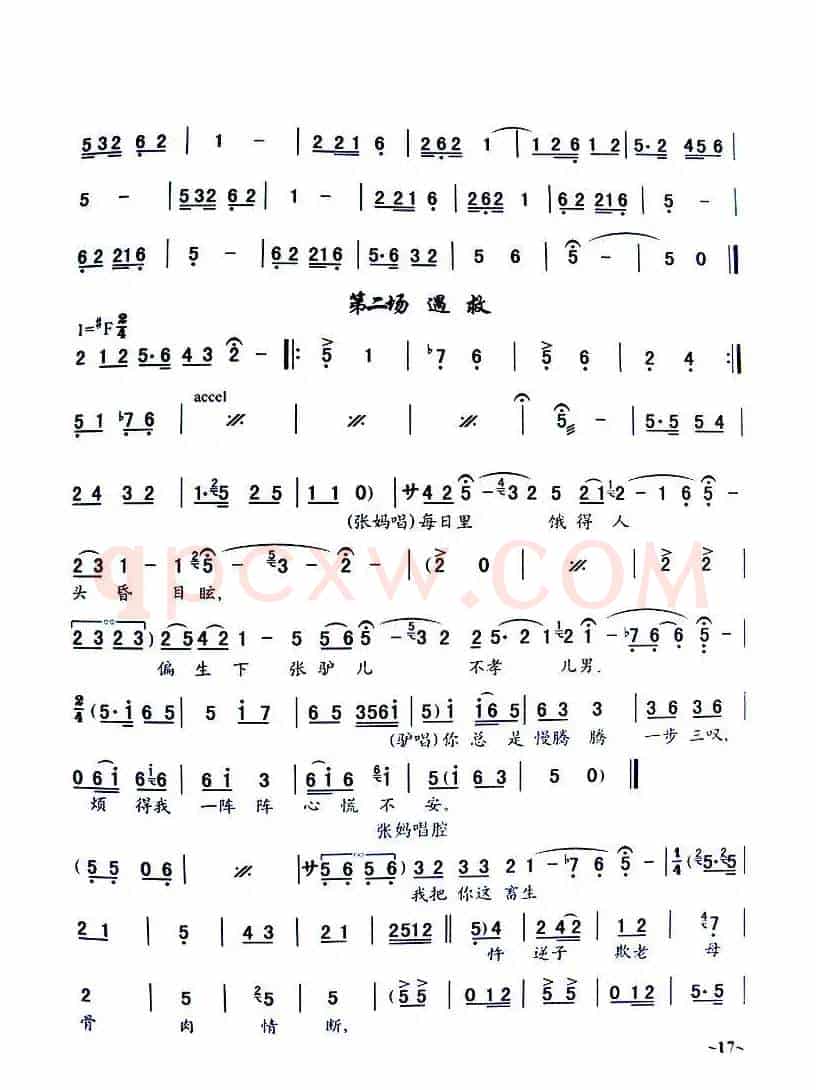 5 3 2 6 2 | 1 － | 2 2 1 6 | 2 6 2 1 | 1 2 6 1 2 | 5· 2 4 5 6 |
5 － | 5 3 2 6 2 | 1 － | 2 2 1 6 | 2 6 2 1 | 6 2 2 1 6 | 5 － |
6 2 2 1 6 | 5 － | 6 2 2 1 6 | 5· 6 3 2 | 5 6 | 5 － | 5 0 ‖
第二场 遇救
1=#F 2/4
2 1 2 5· 6 4 3 2 － ‖: 5 1 | b7 6 | 5 6 | 2 4 :‖
accel
5 1 b7 6 | | | | 5 － | 5· 5 5 4 |
2 4 3 2 | 1· 2 5 2 5 | 1 1 0) | サ 4 2 5 － 4 3 2 5 2 1 2 － 1 6 5 －
(张妈唱)每日里 饿得人
2 3 1 － 1 5 － 5 3 － 2 － | (2 0 | | 2 2 |
头昏目眩,
2 3 2 3) 2 5 4 2 1 － 5 5 6 5 － 5 3 2 2 5· 1 2 1 － b7 6 6 5 －
偏生下张驴儿 不孝儿男.
2/4 (5· i 6 5 | 5 i 7 | 6 5 3 5 6 i | 5) i i 6 5 | 6 3 3 | 3 6 3 6 |
(驴唱)你总是慢腾腾 一步三叹,
0 6 i 6 i | 6 i 3 | 6 i 6 i | (5· 6 3 | 5 0) ‖
烦得我 一阵阵心慌不安。
张妈唱腔
(5 5 0 6 | | サ 5 6 5 6) 3 2 3 3 2 1 － b7 6 5 － | 1/4 (2 5· 2 5 |
我把你这畜生
2 1 | 5 | 4 3 | 2 1 | 2 5 1 2 ‖ 5) 4 | 2 4 2 | 1 2 | 4 7 |
忤逆子欺老母
2 | 5 | 2 5 | 5 | (5 5 | 0 1 2 | 5 5 | 0 1 2 | 5· 5 |
骨肉情断,
~17~
qpcxw.com